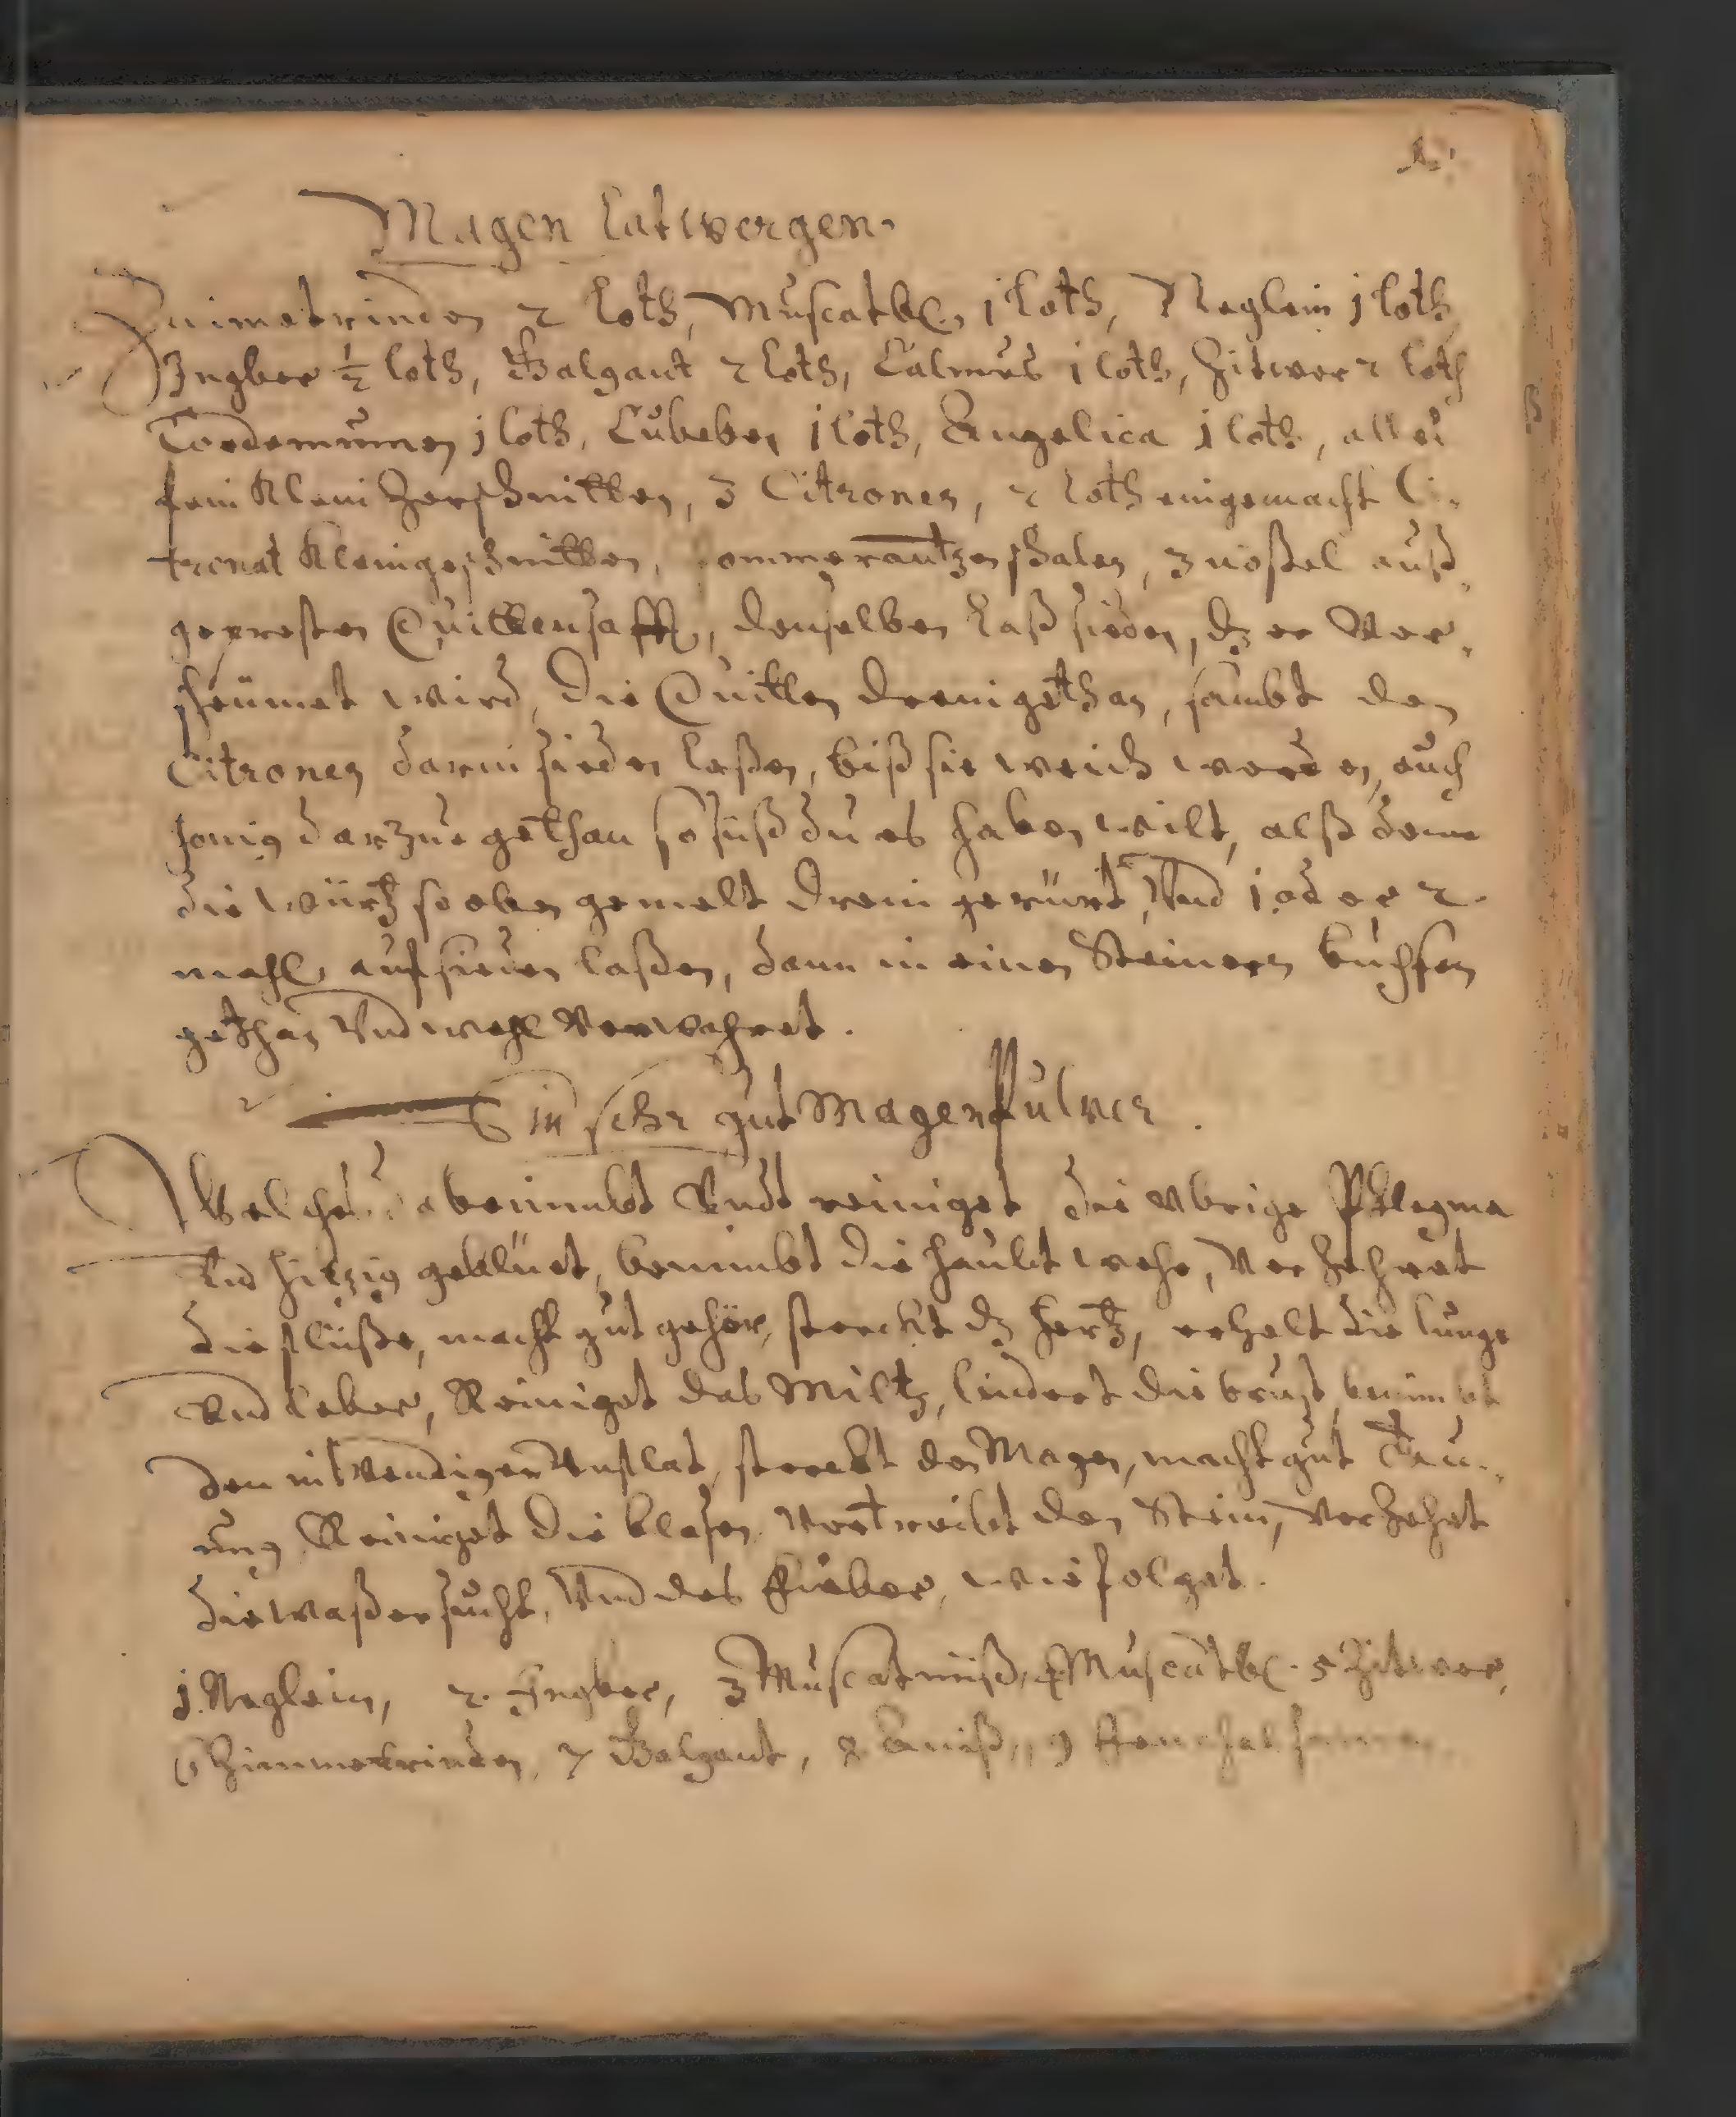 Magen Latwergen.
Zimetrinden 2 Loth, Muscatbl. j Loth, Neglein j Loth
Ingber ½ loth, Galgant 2 loth, Calmus j loth, Zitwer 2 loth
Cordemumen j loth, Cubeben j loth, Angelica j loth, alles
fein klein zerschnitten, 3 Citronen, 2 loth eingemacht Ci-
tronat kleingeschnitten, pommerantzenschalen, 3 nößel auß-
gepresten Quittensafft, denselben laß sieden, dz er ver-
scheumet wird, die Quitten drein gethan, sambt den
Citronen darin sieden laßen, biß sie weich werden, auch
honig darzue gethan so süß du es haben wilt, alß denn
die würtz so oben gemelt drein gerürt, Vnd j oder 2.
mahl auf sieden laßen, dann in einen Steinern buchsen
gethan Vnd wohl verwahret.
Ein sehr gut Magenpulver.
Welches da benimbt Vndt reiniget die vbrige Phlegma
Vnd hitzig geblüet, benimbt die haubt wehe, verzehret
die flüße, macht gut gehör, sterckt dz hertz, erhelt die lunge
Vnd leber, Reiniget das Miltz, lindert die brust, benimbt
den inwendigen Vnflat, sterckt den Magen, macht gut Dau-
ung, Reiniget die blasen, vertreibt den Stein, verzehrt
die waßersucht, Vnd das fieber, wie folget.
j. Neglein, 2. Ingber, 3 Muscatnüß, 4 Muscatbl. 5 Zitwer,
6 Zimmetrinden, 7 Galgant, 8 Eniß, 9 Fenchelsamen